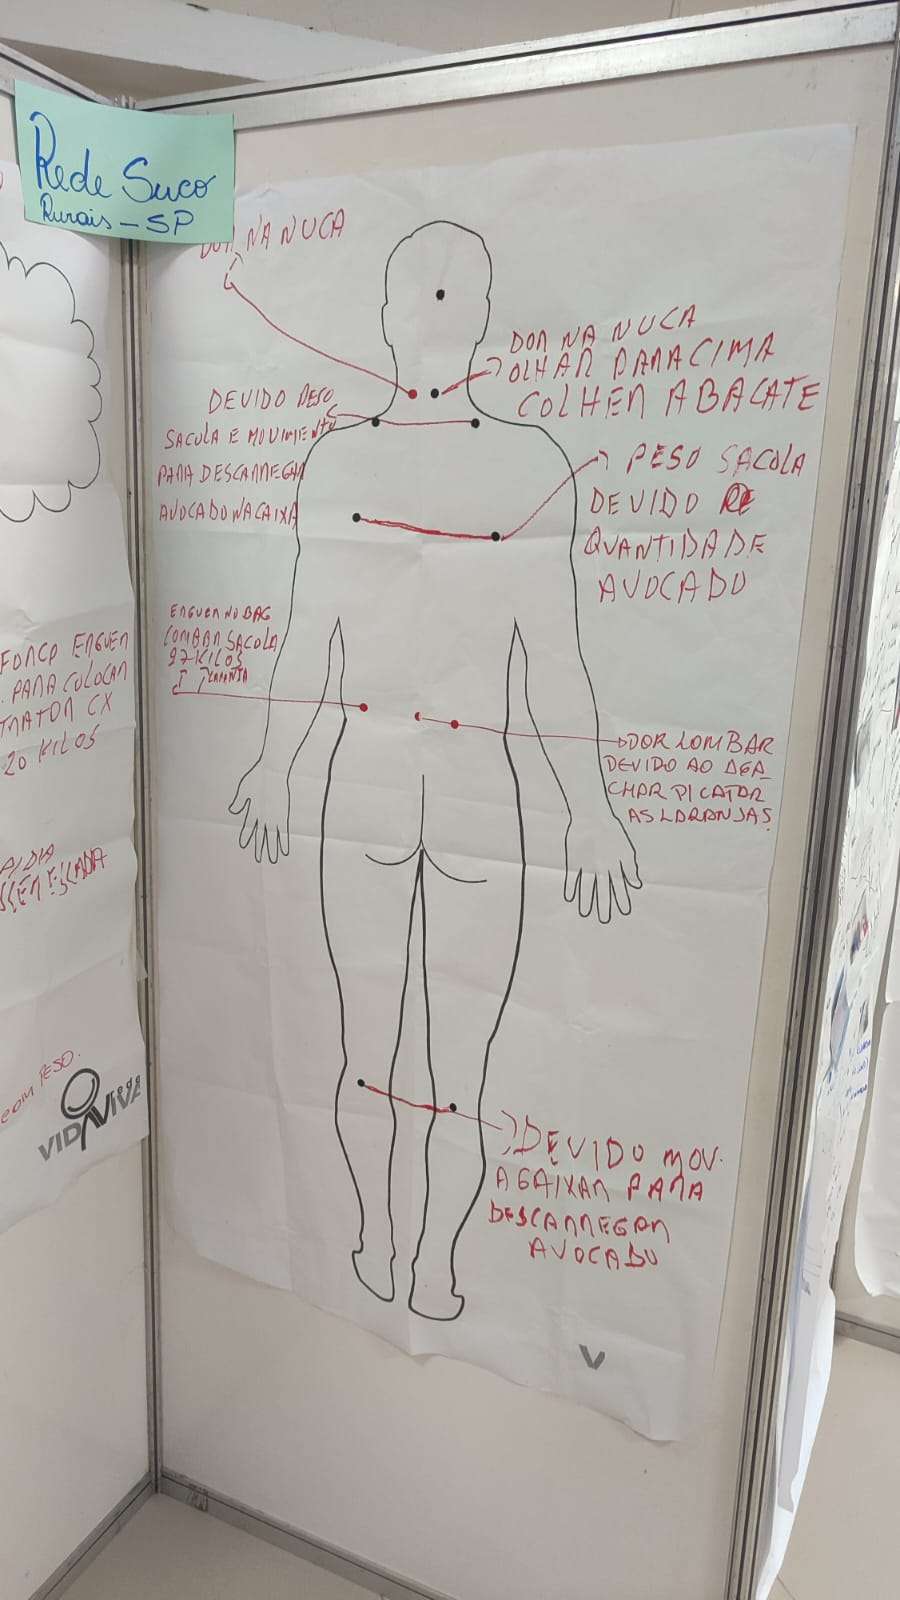 Rede Suco
Rurais - SP
DOR NA NUCA
DOR NA NUCA
OLHAR PARA CIMA
COLHER ABACATE
DEVIDO PESO
SACOLA E MOVIMENTO
PARA DESCARREGAR
AVOCADO NA CAIXA
PESO SACOLA
DEVIDO
QUANTIDADE
AVOCADO
ERGUER NO BAG
SACOLA
27 KILOS
LARANJA
DOR LOMBAR
DEVIDO AO AGA
CHAR P/ CATAR
AS LARANJAS.
DEVIDO MOV.
AGAIXAR PARA
DESCARREGAR
AVOCADO
V
FORÇO ERGUER
PARA COLOCAR
CX
20 KILOS
A/DIA
ESCADA
COM PESO.
VIDA VIVA